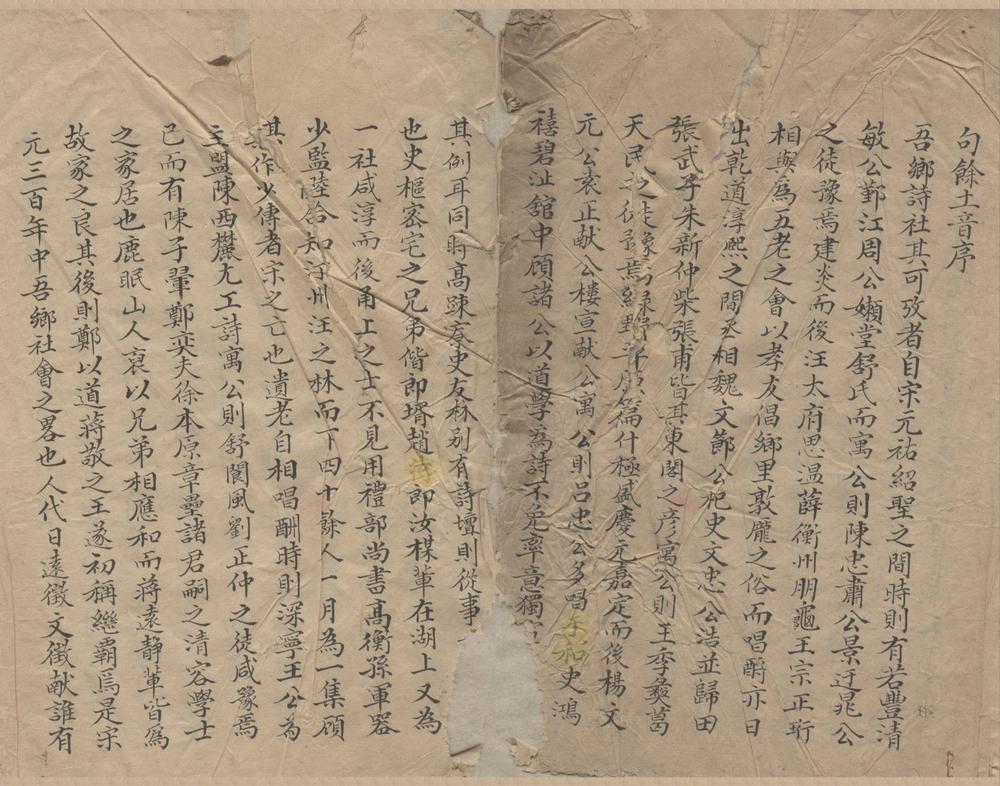 句餘土音序
吾鄉詩社其可攷者自宋元祐紹聖之間時則有若豐清
敏公鄞江周公嬾堂舒氏而寓公則陳忠肅公景迂晁公
之徒豫焉建炎而後汪太府思温薛衡州朋龜王宗正珩
相與為五老之會以孝友倡鄉里敦龐之俗而唱酬亦日
出乾道淳熙之間丞相魏文節公祀史文忠公浩並歸田
張武子朱新仲柴張甫皆其東閣之彦寓公則王季彝葛
天民之徒豫焉綠野平原篇什極盛慶元嘉定而後楊文
元公袁正献公樓宣献公寓公則吕忠公多唱和史鴻
禧碧沚舘中顧諸公以道學為詩不免率意獨
其例耳同時高踈寮史友林别有詩壇則從事
也史樞密宅之兄弟偕即壻趙即汝楳輩在湖上又為
一社咸淳而後甬上之士不見用禮部尚書高衡孫軍器
少監陸合知汀州汪之林而下四十餘人一月為一集顧
其作少傳者宋之亡也遺老自相唱酬時則深寧王公為
主盟陳西麓尤工詩寓公則舒閬風劉正仲之徒咸豫焉
已而有陳子翬鄭奕夫徐本原章壘諸君嗣之清容學士
之家居也鹿眠山人裒以兄弟相應和而蔣遠静輩皆為
故家之良其後則鄭以道蔣敬之王遂初稱繼覇焉是宋
元三百年中吾鄉社會之畧也人代日遠徵文徵献誰有